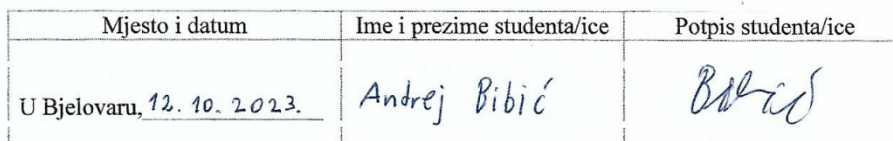 Mjesto i datum Ime i prezime studenta/ice Potpis studenta/ice
U Bjelovaru, 12. 10. 2023. Andrej Bibić